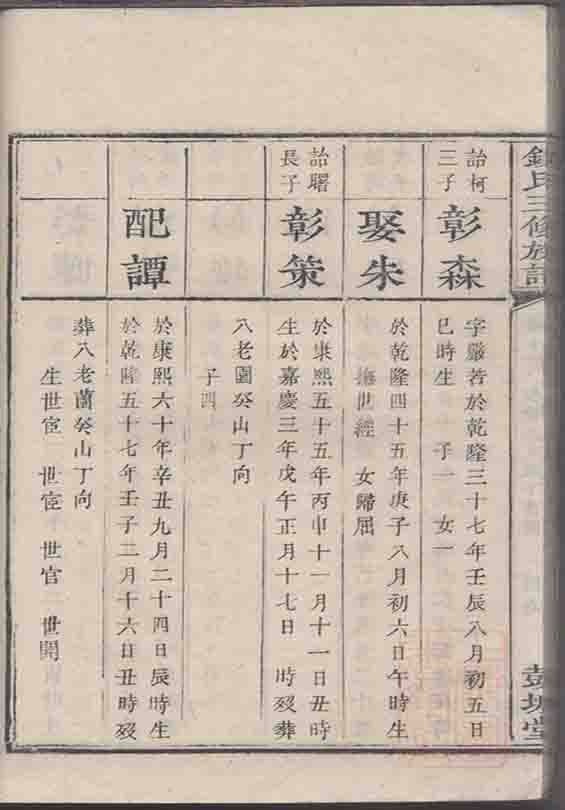 氏三修族
彭城堂
詒柯
三子
彰森
字嚴若於乾隆三十七年壬辰八月初五日
巳時生 子一 女一
娶朱
於乾隆四十五年庚子八月初六日午時生
撫世經 女歸屈
詒曙
長子
彰策
於康熙五十五年丙申十一月十一日丑時
生於嘉慶三年戊午正月十七日 時歿葬
八老園癸山丁向
子四
配譚
於康熙六十年辛丑九月二十四日辰時生
於乾隆五十七年壬子二月十六日丑時歿
葬八老蘭癸山丁向
生世宦 世宧 世官 世開